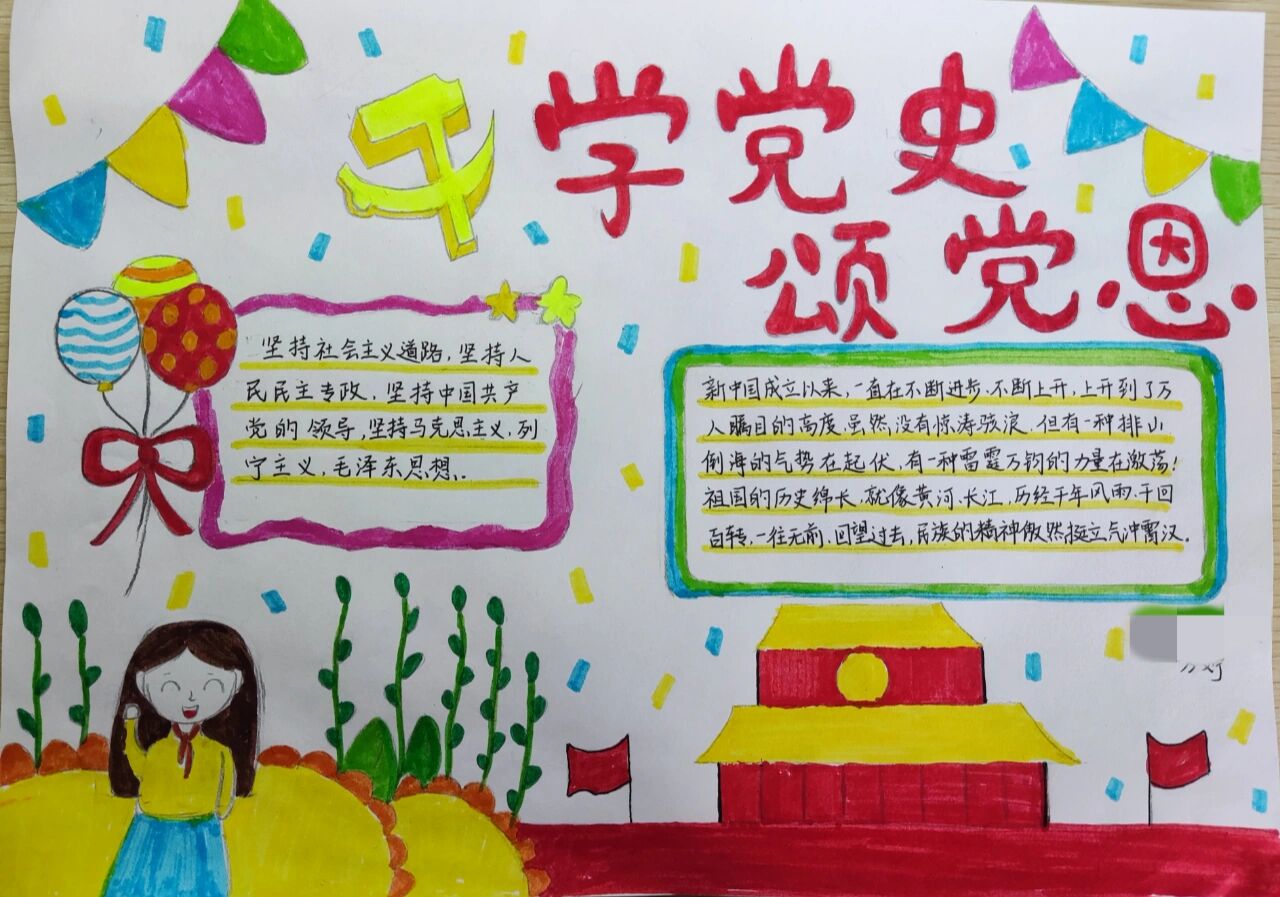 学党史
颂党恩
坚持社会主义道路，坚持人
民民主专政，坚持中国共产
党的领导，坚持马克思主义，列
宁主义，毛泽东思想。
新中国成立以来，一直在不断进步，不断上升，上升到了万
人瞩目的高度，虽然没有惊涛骇浪，但有一种排山
倒海的气势在起伏，有一种雷霆万钧的力量在激荡！
祖国的历史绵长，就像黄河、长江，历经千年风雨，千回
百转，一往无前，回望过去，民族的精神傲然挺立气冲霄汉。